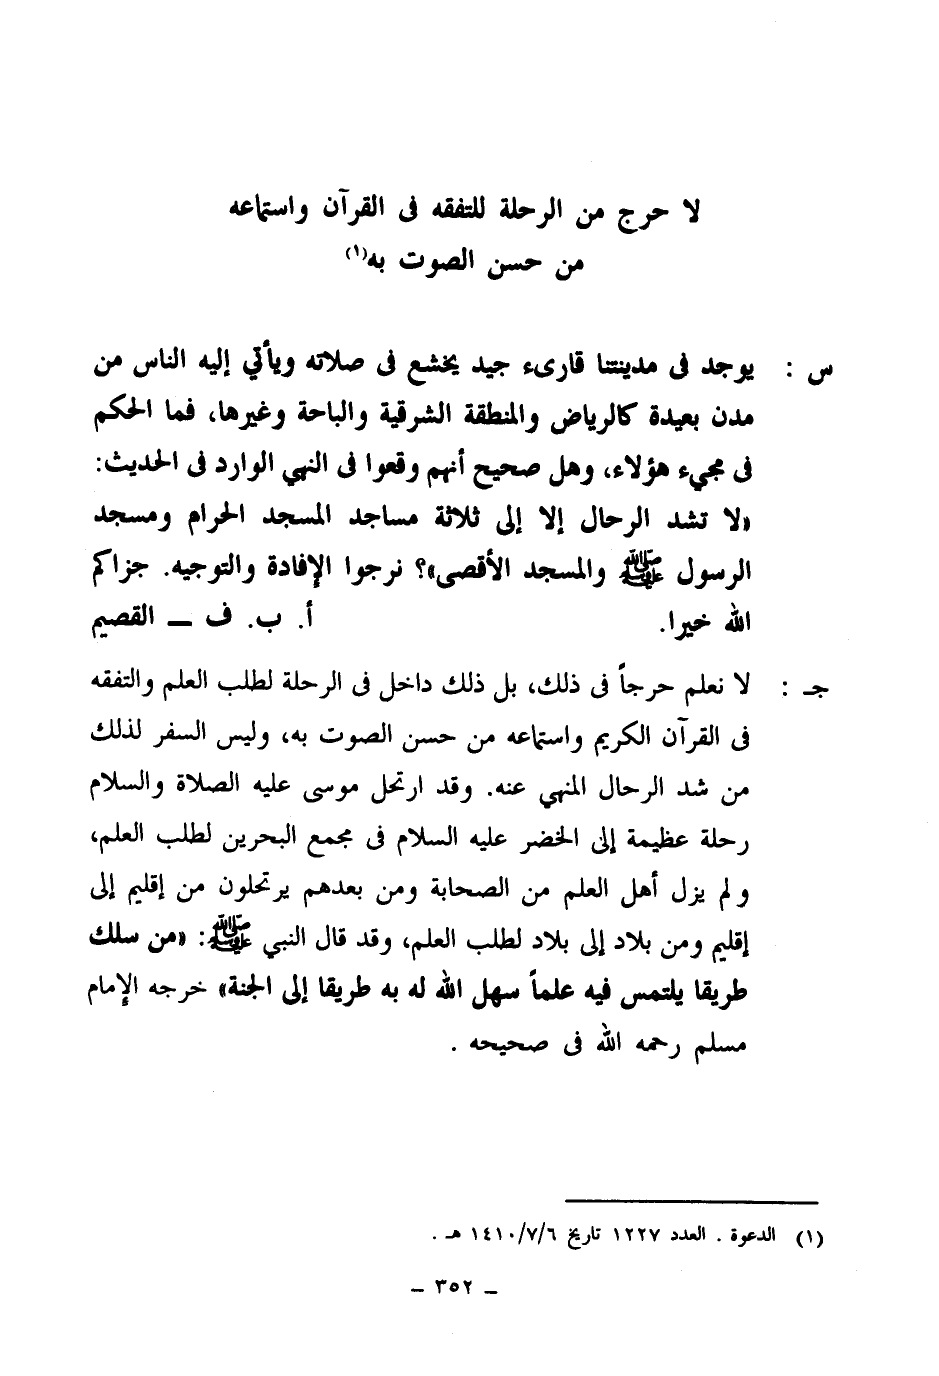 لا حرج من الرحلة للتفقه فى القرآن واستماعه
من حسن الصوت به(١)
س : يوجد فى مدينتنا قارىء جيد يخشع فى صلاته ويأتي إليه الناس من
مدن بعيدة كالرياض والمنطقة الشرقية والباحة وغيرها، فما الحكم
فى مجيء هؤلاء، وهل صحيح أنهم وقعوا فى النهي الوارد فى الحديث:
«لا تشد الرحال إلا إلى ثلاثة مساجد المسجد الحرام ومسجد
الرسول ﷺ والمسجد الأقصى»؟ نرجوا الإفادة والتوجيه. جزاكم
الله خيرا. أ. ب. ف ـ القصيم
جـ : لا نعلم حرجاً فى ذلك، بل ذلك داخل فى الرحلة لطلب العلم والتفقه
فى القرآن الكريم واستماعه من حسن الصوت به، وليس السفر لذلك
من شد الرحال المنهي عنه. وقد ارتحل موسى عليه الصلاة والسلام
رحلة عظيمة إلى الخضر عليه السلام فى مجمع البحرين لطلب العلم،
ولم يزل أهل العلم من الصحابة ومن بعدهم يرتحلون من إقليم إلى
إقليم ومن بلاد إلى بلاد لطلب العلم، وقد قال النبي ﷺ: «من سلك
طريقا يلتمس فيه علماً سهل الله له به طريقا إلى الجنة» خرجه الإمام
مسلم رحمه الله فى صحيحه .
(١) الدعوة . العدد ١٢٢٧ تاريخ ١٤١٠/٧/٦ هـ .
ـ ٣٥٢ ـ